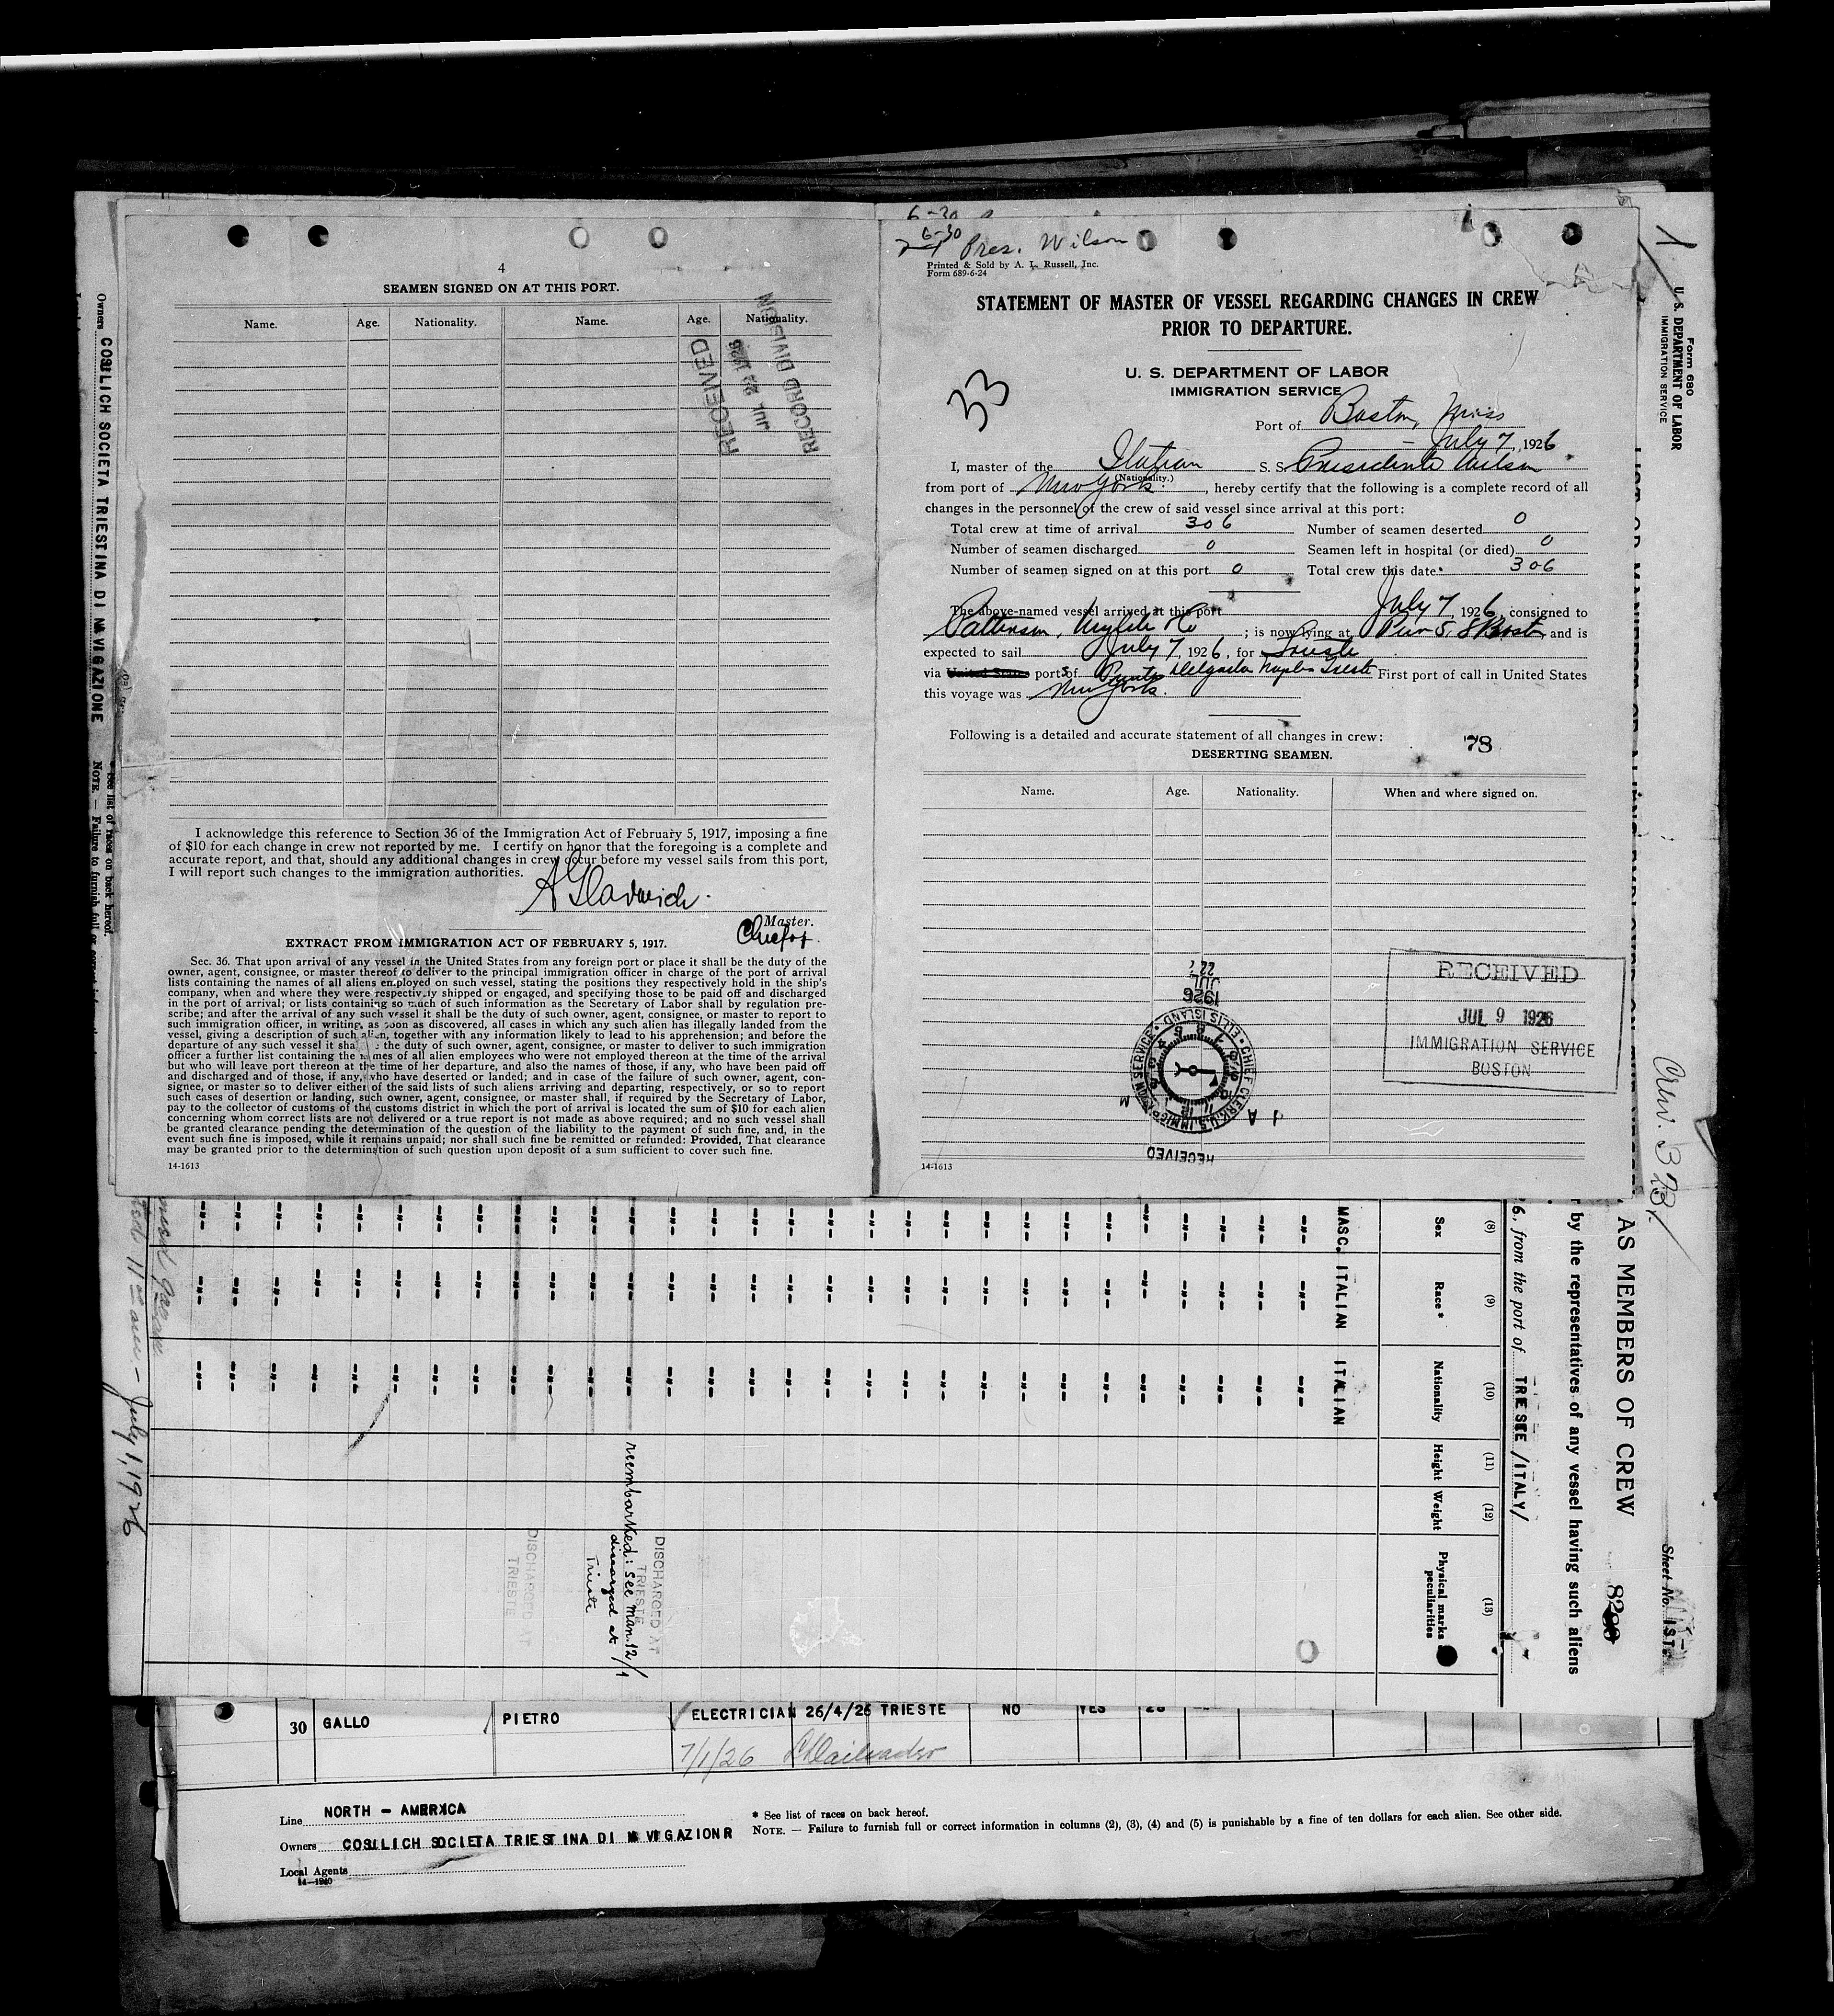 4
SEAMEN SIGNED ON AT THIS PORT.
Name. Age. Nationality. Name. Age. Nationality.
RECEIVED
JUL 22 1926
RECORD DIVISION
I acknowledge this reference to Section 36 of the Immigration Act of February 5, 1917, imposing a fine
of $10 for each change in crew not reported by me. I certify on honor that the foregoing is a complete and
accurate report, and that, should any additional changes in crew occur before my vessel sails from this port,
I will report such changes to the immigration authorities.
Master.
EXTRACT FROM IMMIGRATION ACT OF FEBRUARY 5, 1917.
Sec. 36. That upon arrival of any vessel in the United States from any foreign port or place it shall be the duty of the
owner, agent, consignee, or master thereof to deliver to the principal immigration officer in charge of the port of arrival
lists containing the names of all aliens employed on such vessel, stating the positions they respectively hold in the ship's
company, when and where they were respectively shipped or engaged, and specifying those to be paid off and discharged
in the port of arrival; or lists containing so much of such information as the Secretary of Labor shall by regulation pre-
scribe; and after the arrival of any such vessel it shall be the duty of such owner, agent, consignee, or master to report to
such immigration officer, in writing, as soon as discovered, all cases in which any such alien has illegally landed from the
vessel, giving a description of such alien, together with any information likely to lead to his apprehension; and before the
departure of any such vessel it shall be the duty of such owner, agent, consignee, or master to deliver to such immigration
officer a further list containing the names of all alien employees who were not employed thereon at the time of the arrival
but who will leave port thereon at the time of her departure, and also the names of those, if any, who have been paid off
and discharged and of those, if any, who have deserted or landed; and in case of the failure of such owner, agent, con-
signee, or master so to deliver either of the said lists of such aliens arriving and departing, respectively, or so to report
such cases of desertion or landing, such owner, agent, consignee, or master shall, if required by the Secretary of Labor,
pay to the collector of customs of the customs district in which the port of arrival is located the sum of $10 for each alien
concerning whom correct lists are not delivered or a true report is not made as above required; and no such vessel shall
be granted clearance pending the determination of the question of the liability to the payment of such fine, and, in the
event such fine is imposed, while it remains unpaid; nor shall such fine be remitted or refunded: Provided, That clearance
may be granted prior to the determination of such question upon deposit of a sum sufficient to cover such fine.
14-1613
6-30
6-30
Pres. Wilson
Printed & Sold by A. L. Russell, Inc.
Form 689-6-24
STATEMENT OF MASTER OF VESSEL REGARDING CHANGES IN CREW
PRIOR TO DEPARTURE.
U. S. DEPARTMENT OF LABOR
IMMIGRATION SERVICE
33
Port of Boston, Mass
July 7, 1926
I, master of the Italian S. S. Presidente Wilson
(Nationality.)
from port of New York, hereby certify that the following is a complete record of all
changes in the personnel of the crew of said vessel since arrival at this port:
Total crew at time of arrival 306 Number of seamen deserted 0
Number of seamen discharged 0 Seamen left in hospital (or died) 0
Number of seamen signed on at this port 0 Total crew this date 306
The above-named vessel arrived at this port July 7, 1926, consigned to
Patterson, Wylde & Co; is now lying at Pier 5, S Boston and is
expected to sail July 7, 1926, for Trieste
via United States ports of Ponta Delgada Naples Trieste First port of call in United States
this voyage was New York.
Following is a detailed and accurate statement of all changes in crew:
78
DESERTING SEAMEN.
Name. Age. Nationality. When and where signed on.
22
JUL
1926
CHIEF CLERK U.S. IMMIGRATION SERVICE ELLIS ISLAND
RECEIVED
RECEIVED
JUL 9 1926
IMMIGRATION SERVICE
BOSTON
14-1613
Form 680
U. S. DEPARTMENT OF LABOR
IMMIGRATION SERVICE
Owners COSULICH SOCIETA TRIESTINA DI NAVIGAZIONE
* See list of races on back hereof.
NOTE. — Failure to furnish full or
Sheet No. 1ST.
AS MEMBERS OF CREW
8200
by the representatives of any vessel having such aliens
6, from the port of TRIESTE /ITALY/
(8) (9) (10) (11) (12) (13)
Sex Race* Nationality Height Weight Physical marks or peculiarities
MASC. ITALIAN ITALIAN
DISCHARGED AT
TRIESTE
reembarked: see man. 12/1
discarged at
Trieste
DISCHARGED AT
TRIESTE
July 1, 1926
30 GALLO PIETRO ELECTRICIAN 26/4/26 TRIESTE NO YES 26
7/1/26
Line NORTH - AMERICA
Owners COSULICH SOCIETA TRIESTINA DI NAVIGAZIONE
Local Agents
14-1240
* See list of races on back hereof.
NOTE. — Failure to furnish full or correct information in columns (2), (3), (4) and (5) is punishable by a fine of ten dollars for each alien. See other side.